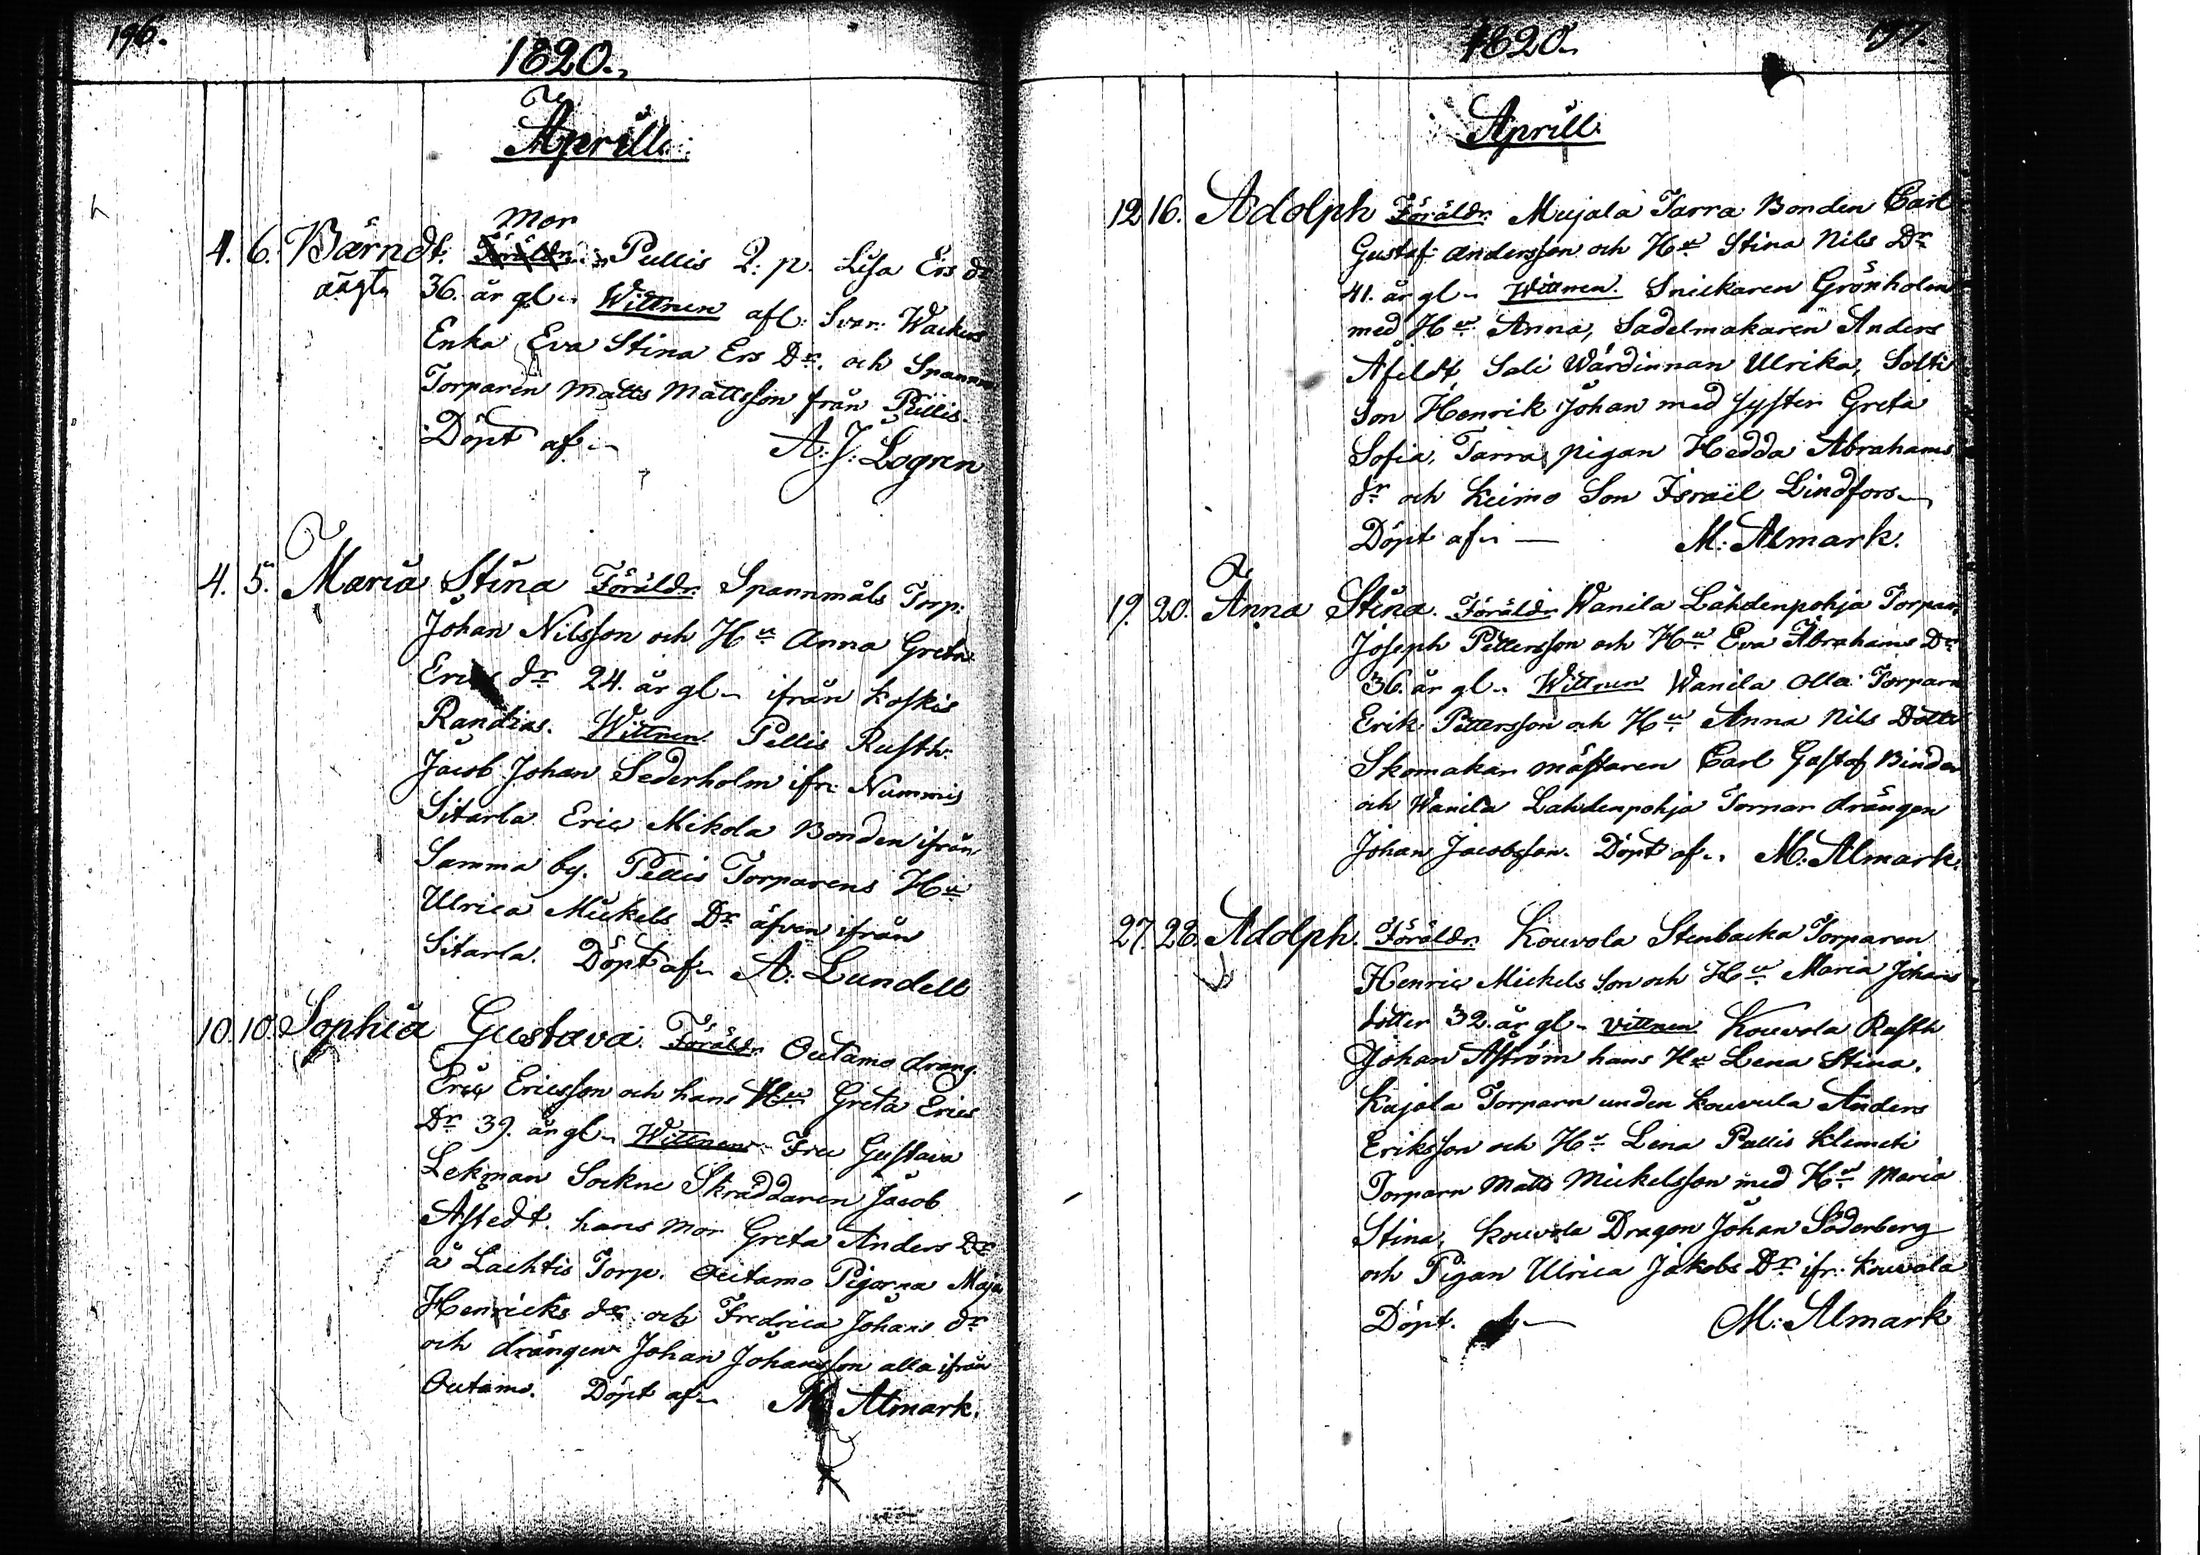 196.
1820.
Aprill.
4. 6. Bærndt. Mor Föräldr. Pullis Q: p. Lisa Ers dr
oägta 36. år gl. Wittnen afl: Svar: Wackers
Enka Eva Stina Ers Dr. och Spannm
Torparen Matts Mattsson från Pullis.
Döpt af A: J: Logren
4. 5. Maria Stina Föräldr. Spannmåls Torp:
Johan Nilsson och Hu Anna Greta
Erics dr 24. år gl ifrån Koskis
Randias. Wittnen Pellis Rusth.
Jacob Johan Sederholm ifr: Nummis
Sitarla Eric Mikola Bonden ifrån
Samma by. Pellis Torparens Hu
Ulrica Mickels Dr äfven ifrån
Sitarla. Döpt af A: Lundell
10. 10. Sophia Gustava. Föräldr. Outamo dräng
Eric Ericsson och hans Hu Greta Erics
Dr 39. år gl Wittnen Fru Gustava
Lekman Sockne Skräddaren Jacob
Afstedt. hans mor Greta Anders Dr
å Lachtis Torp. Outamo Pigorna Maja
Henricks dr och Fredrica Johans dr
och drängen Johan Johansson alla ifrån
Outamo. Döpt af M. Almark.
1820.
197.
Aprill.
12 16. Adolph Föräldr. Mujala Tarra Bonden Carl
Gustaf Andersson och Hu Stina Nils Dr
41. år gl Wittnen. Snickaren Grönholm
med Hu Anna, Sadelmakaren Anders
Afeldt Sali Wärdinnan Ulrika, Solti
Son Henrik Johan med Syster Greta
Sofia, Tarra pigan Hedda Abrahams
dr och Keimo Son Israël Lindfors
Döpt af M: Almark.
19. 20. Anna Stina. Föräldr Wanila Lähdenpohja Torparn
Joseph Pettersson och Hu Eva Abrahams Dr
36. år gl. Wittnen Wanila Olla Torparn
Erik Pettersson och Hu Anna Nils Dotter
Skomakar mästaren Carl Gustaf Binder
och Wanila Lahdenpohja Torpar drängen
Johan Jacobsson. Döpt af. M. Almark.
27. 28. Adolph. Föräldr. Kouvola Stenbacka Torparen
Henric Mickels Son och Hu Maria Johans
dotter 32. år gl Vittnen Kouvola Rusth
Johan Aström hans Hu Lena Stina.
Kujala Torparn under Kouvula Anders
Eriksson och Hu Lena Pullis Klemeti
Torparn Matts Mickelsson med Hu Maria
Stina, Kouvola Dragon Johan Söderberg
och Pigan Ulrica Jakobs Dr ifr: Kouvola
Döpt. af M: Almark